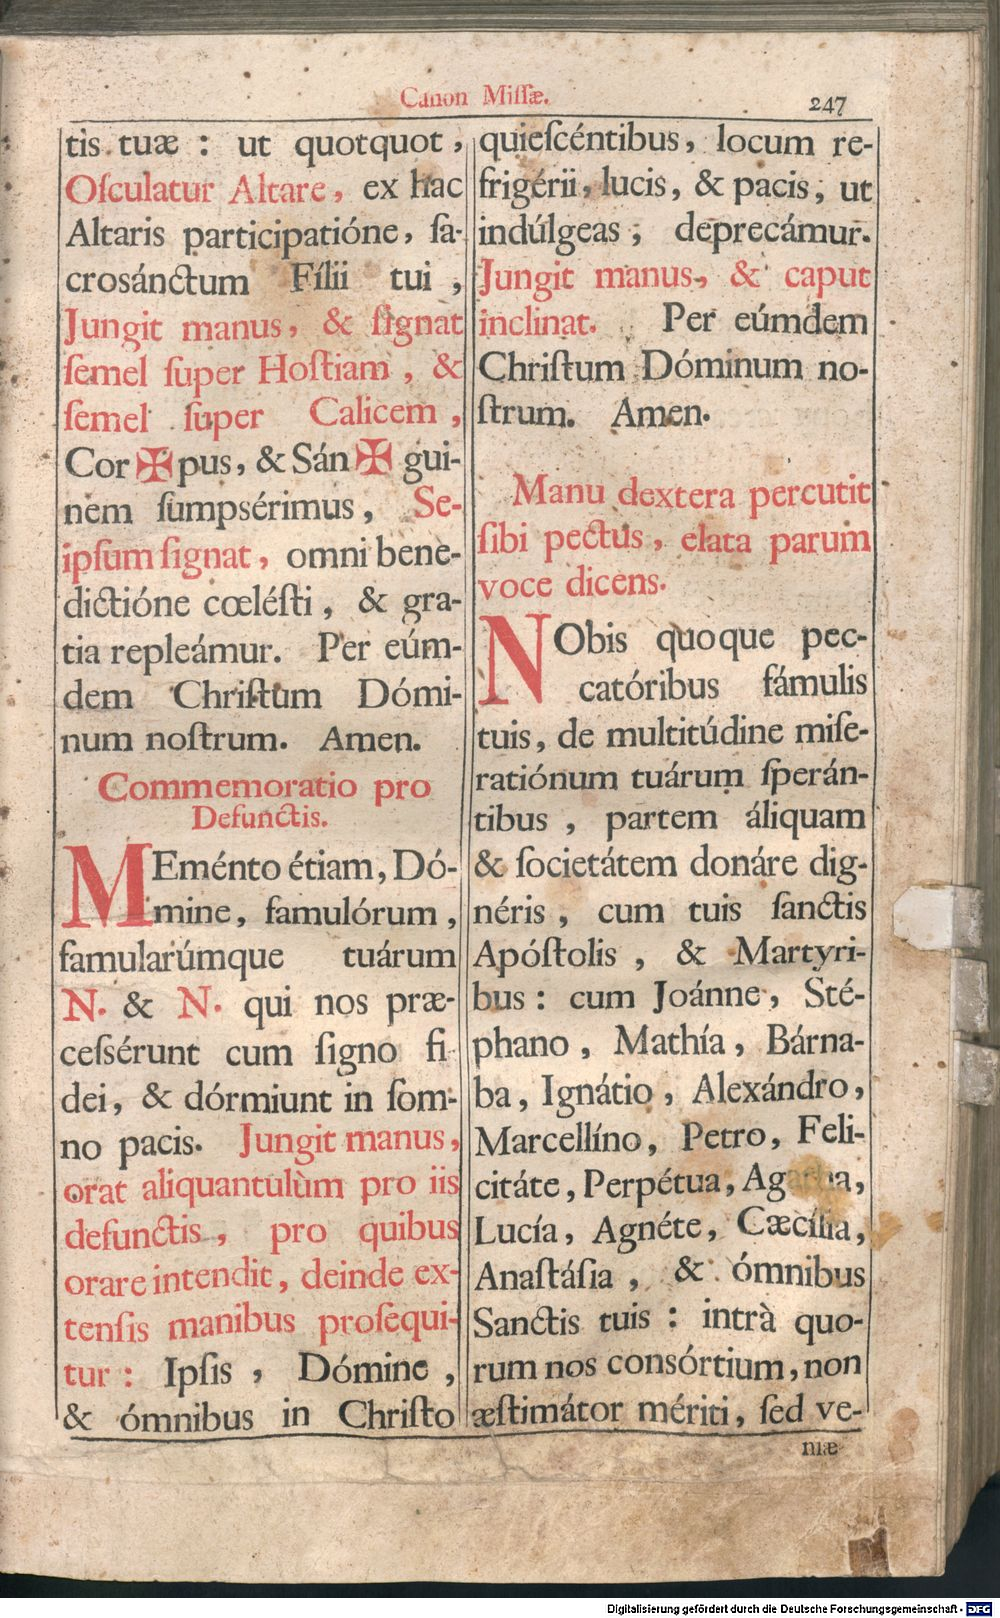 Canon Miſſæ.
247
tis tuæ : ut quotquot ,
Oſculatur Altare, ex hac
Altaris participatióne, ſa-
crosánctum Fílii tui ,
Jungit manus, & ſignat
ſemel ſuper Hoſtiam , &
ſemel ſuper Calicem ,
Cor ✠ pus, & Sán ✠ gui-
nem ſumpsérimus , Se-
ipſum ſignat, omni bene-
dictióne cœléſti , & gra-
tia repleámur. Per eúm-
dem Chriſtum Dómi-
num noſtrum. Amen.
Commemoratio pro
Defunctis.
MEménto étiam, Dó-
mine, famulórum ,
famularúmque tuárum
N. & N. qui nos præ-
ceſsérunt cum ſigno fi-
dei , & dórmiunt in ſom-
no pacis. Jungit manus,
orat aliquantulùm pro iis
defunctis , pro quibus
orare intendit , deinde ex-
tenſis manibus proſequi-
tur : Ipſis , Dómine ,
& ómnibus in Chriſto
quieſcéntibus, locum re-
frigérii, lucis, & pacis, ut
indúlgeas , deprecámur.
Jungit manus, & caput
inclinat. Per eúmdem
Chriſtum Dóminum no-
ſtrum. Amen.
Manu dextera percutit
ſibi pectus , elata parum
voce dicens.
NObis quoque pec-
catóribus fámulis
tuis, de multitúdine miſe-
ratiónum tuárum ſperán-
tibus , partem áliquam
& ſocietátem donáre dig-
néris , cum tuis ſanctis
Apóſtolis , & Martyri-
bus : cum Joánne, Sté-
phano , Mathía, Bárna-
ba, Ignátio , Alexándro,
Marcellíno, Petro, Feli-
citáte, Perpétua, Agatha,
Lucía, Agnéte, Cæcília,
Anaſtáſia , & ómnibus
Sanctis tuis : intrà quo-
rum nos consórtium, non
æſtimátor mériti, ſed ve-
niæ
Digitalisierung gefördert durch die Deutsche Forschungsgemeinschaft - DFG